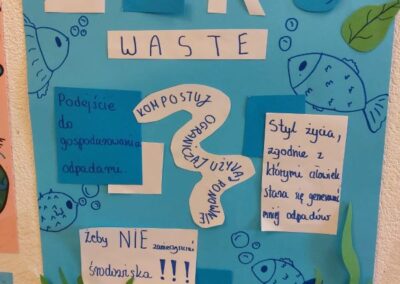 WASTE
Podejście
do
gospodarowania
odpadami.
KOMPOSTUJ
OGRANICZAJ UŻYWAJ PONOWNIE
Styl życia,
zgodnie z
którym człowiek
stara się generować
mniej odpadów
Żeby NIE zanieczyścić
środowiska !!!